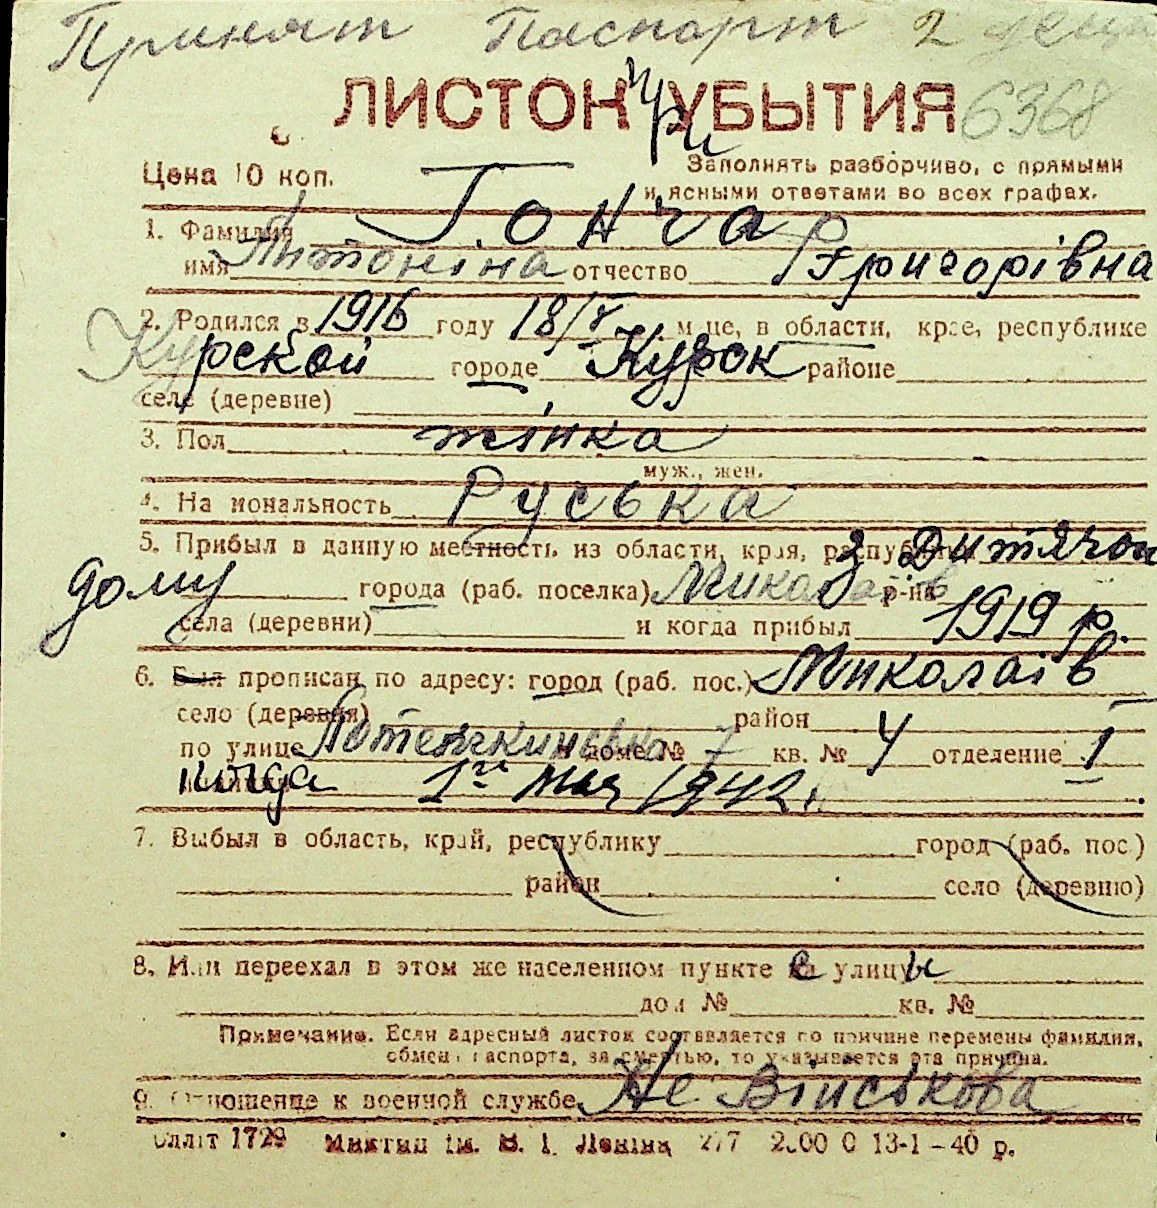 Принят Паспорт 2
ЛИСТОК УБЫТИЯ 6368
при
Цена 10 коп. Заполнять разборчиво, с прямыми
и ясными ответами во всех графах.
1. Фамилия Гончар
имя Антоніна отчество Григорівна
2. Родился в 1916 году 18/V м-це, в области, крае, республике
Курской городе Курск районе
селе (деревне)
3. Пол жінка
муж., жен.
4. Национальность Руська
5. Прибыл в данную местность из области, края, республики з Дитячого
дому города (раб. поселка) Миколаїв р-на
села (деревни) и когда прибыл 1919 р.
6. Был прописан по адресу: город (раб. пос.) Миколаів
село (деревня) район
по улице Потемкинська 7 и доме № кв. № 4 отделение 1
когда 1го мая 1942 г.
7. Выбыл в область, край, республику город (раб. пос.)
район село (деревню)
8. Или переехал в этом же населенном пункте с улицы
дом № кв. №
Примечание. Если адресный листок составляется по причине перемены фамилии,
обмена паспорта, за смертью, то указывается эта причина.
9. Отношение к военной службе Не Військова
Оллiт 1729 Миктип iм. В. I. Ленiна 277 2000 0 13-1-40 р.